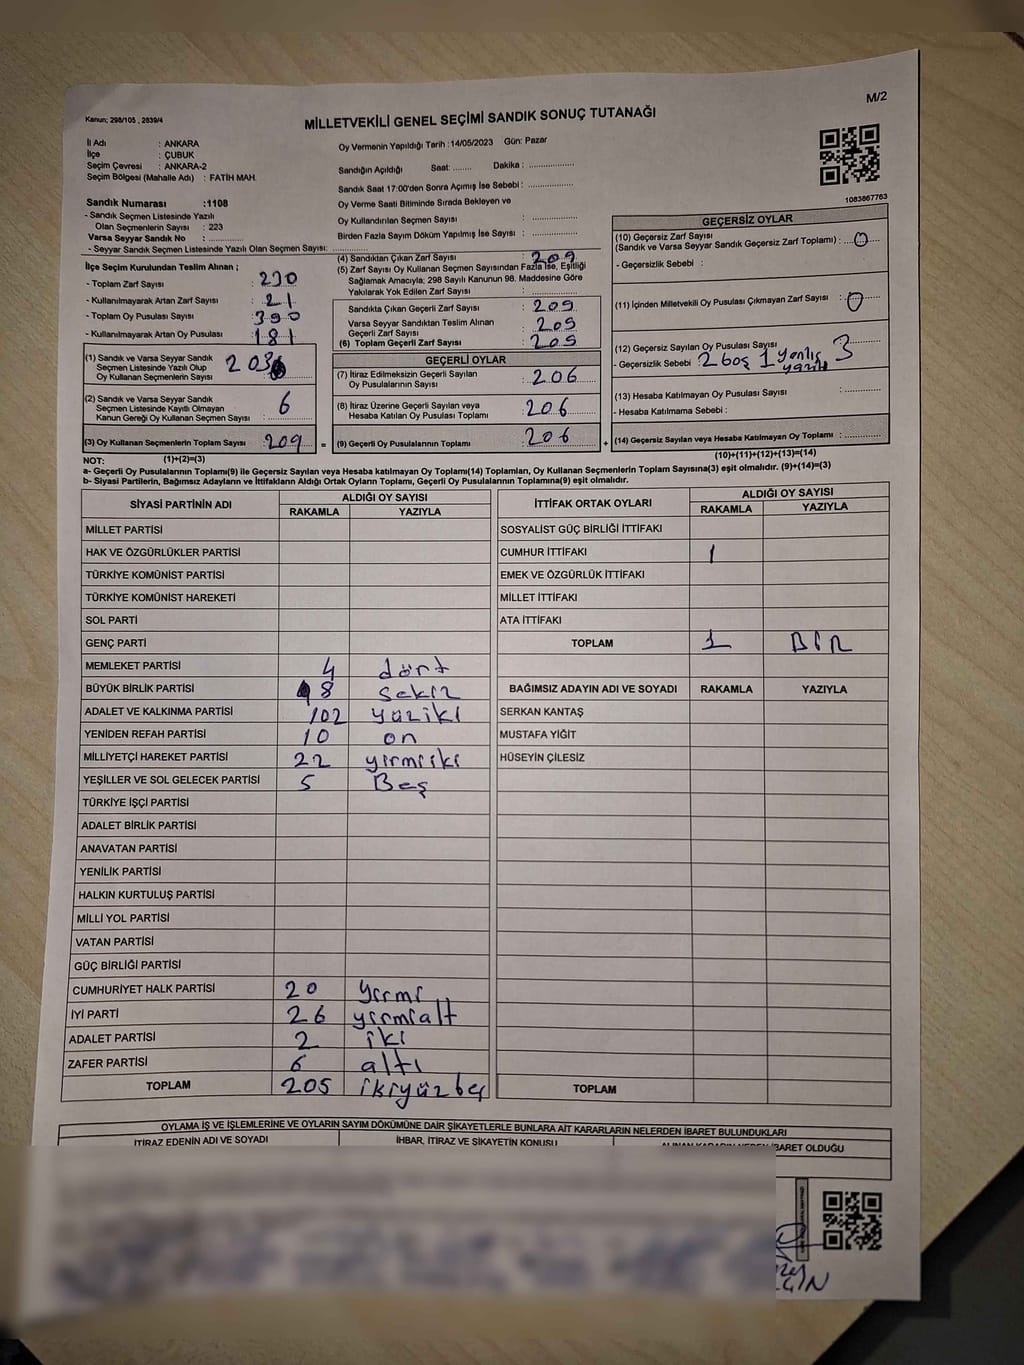 M/2
Kanun; 298/105 , 2839/4
MİLLETVEKİLİ GENEL SEÇİMİ SANDIK SONUÇ TUTANAĞI
İl Adı : ANKARA
İlçe : ÇUBUK
Seçim Çevresi : ANKARA-2
Seçim Bölgesi (Mahalle Adı) : FATİH MAH.
Sandık Numarası :1108
- Sandık Seçmen Listesinde Yazılı
Olan Seçmenlerin Sayısı : 223
Varsa Seyyar Sandık No :
- Seyyar Sandık Seçmen Listesinde Yazılı Olan Seçmen Sayısı:
Oy Vermenin Yapıldığı Tarih :14/05/2023 Gün: Pazar
Sandığın Açıldığı Saat: Dakika :
Sandık Saat 17:00'den Sonra Açılmış İse Sebebi :
Oy Verme Saati Bitiminde Sırada Bekleyen ve
Oy Kullandırılan Seçmen Sayısı :
Birden Fazla Sayım Döküm Yapılmış İse Sayısı :
1083867763
İlçe Seçim Kurulundan Teslim Alınan ;
- Toplam Zarf Sayısı : 230
- Kullanılmayarak Artan Zarf Sayısı : 21
- Toplam Oy Pusulası Sayısı : 390
- Kullanılmayarak Artan Oy Pusulası : 181
(1) Sandık ve Varsa Seyyar Sandık
Seçmen Listesinde Yazılı Olup
Oy Kullanan Seçmenlerin Sayısı : 203
(2) Sandık ve Varsa Seyyar Sandık
Seçmen Listesinde Kayıtlı Olmayan
Kanun Gereği Oy Kullanan Seçmen Sayısı : 6
(3) Oy Kullanan Seçmenlerin Toplam Sayısı : 209 =
(1)+(2)=(3)
(4) Sandıktan Çıkan Zarf Sayısı : 209
(5) Zarf Sayısı Oy Kullanan Seçmen Sayısından Fazla İse, Eşitliği
Sağlamak Amacıyla; 298 Sayılı Kanunun 98. Maddesine Göre
Yakılarak Yok Edilen Zarf Sayısı :
Sandıkta Çıkan Geçerli Zarf Sayısı : 209
Varsa Seyyar Sandıktan Teslim Alınan
Geçerli Zarf Sayısı : 209
(6) Toplam Geçerli Zarf Sayısı : 209
GEÇERLİ OYLAR
(7) İtiraz Edilmeksizin Geçerli Sayılan
Oy Pusulalarının Sayısı : 206
(8) İtiraz Üzerine Geçerli Sayılan veya
Hesaba Katılan Oy Pusulası Toplamı : 206
(9) Geçerli Oy Pusulalarının Toplamı : 206 +
GEÇERSİZ OYLAR
(10) Geçersiz Zarf Sayısı
(Sandık ve Varsa Seyyar Sandık Geçersiz Zarf Toplamı) : 0
- Geçersizlik Sebebi :
(11) İçinden Milletvekili Oy Pusulası Çıkmayan Zarf Sayısı : 0
(12) Geçersiz Sayılan Oy Pusulası Sayısı 3
- Geçersizlik Sebebi 2 boş 1 yanlış
(13) Hesaba Katılmayan Oy Pusulası Sayısı :
- Hesaba Katılmama Sebebi :
(14) Geçersiz Sayılan veya Hesaba Katılmayan Oy Toplamı :
(10)+(11)+(12)+(13)=(14)
NOT:
a- Geçerli Oy Pusulalarının Toplamı(9) ile Geçersiz Sayılan veya Hesaba katılmayan Oy Toplamı(14) Toplamları, Oy Kullanan Seçmenlerin Toplam Sayısına(3) eşit olmalıdır. (9)+(14)=(3)
b- Siyasi Partilerin, Bağımsız Adayların ve İttifakların Aldığı Ortak Oyların Toplamı, Geçerli Oy Pusulalarının Toplamına(9) eşit olmalıdır.
SİYASİ PARTİNİN ADI ALDIĞI OY SAYISI
RAKAMLA YAZIYLA
MİLLET PARTİSİ
HAK VE ÖZGÜRLÜKLER PARTİSİ
TÜRKİYE KOMÜNİST PARTİSİ
TÜRKİYE KOMÜNİST HAREKETİ
SOL PARTİ
GENÇ PARTİ
MEMLEKET PARTİSİ 4 dört
BÜYÜK BİRLİK PARTİSİ 8 sekiz
ADALET VE KALKINMA PARTİSİ 102 yüziki
YENİDEN REFAH PARTİSİ 10 on
MİLLİYETÇİ HAREKET PARTİSİ 22 yirmiiki
YEŞİLLER VE SOL GELECEK PARTİSİ 5 Beş
TÜRKİYE İŞÇİ PARTİSİ
ADALET BİRLİK PARTİSİ
ANAVATAN PARTİSİ
YENİLİK PARTİSİ
HALKIN KURTULUŞ PARTİSİ
MİLLİ YOL PARTİSİ
VATAN PARTİSİ
GÜÇ BİRLİĞİ PARTİSİ
CUMHURİYET HALK PARTİSİ 20 yirmi
İYİ PARTİ 26 yirmialt
ADALET PARTİSİ 2 iki
ZAFER PARTİSİ 6 altı
TOPLAM 205 ikiyüzbeş
İTTİFAK ORTAK OYLARI ALDIĞI OY SAYISI
RAKAMLA YAZIYLA
SOSYALİST GÜÇ BİRLİĞİ İTTİFAKI
CUMHUR İTTİFAKI 1
EMEK VE ÖZGÜRLÜK İTTİFAKI
MİLLET İTTİFAKI
ATA İTTİFAKI
TOPLAM 1 BİR
BAĞIMSIZ ADAYIN ADI VE SOYADI RAKAMLA YAZIYLA
SERKAN KANTAŞ
MUSTAFA YİĞİT
HÜSEYİN ÇİLESİZ
TOPLAM
OYLAMA İŞ VE İŞLEMLERİNE VE OYLARIN SAYIM DÖKÜMÜNE DAİR ŞİKAYETLERLE BUNLARA AİT KARARLARIN NELERDEN İBARET BULUNDUKLARI
İTİRAZ EDENİN ADI VE SOYADI İHBAR, İTİRAZ VE ŞİKAYETİN KONUSU ALINAN KARARIN NEDEN İBARET OLDUĞU